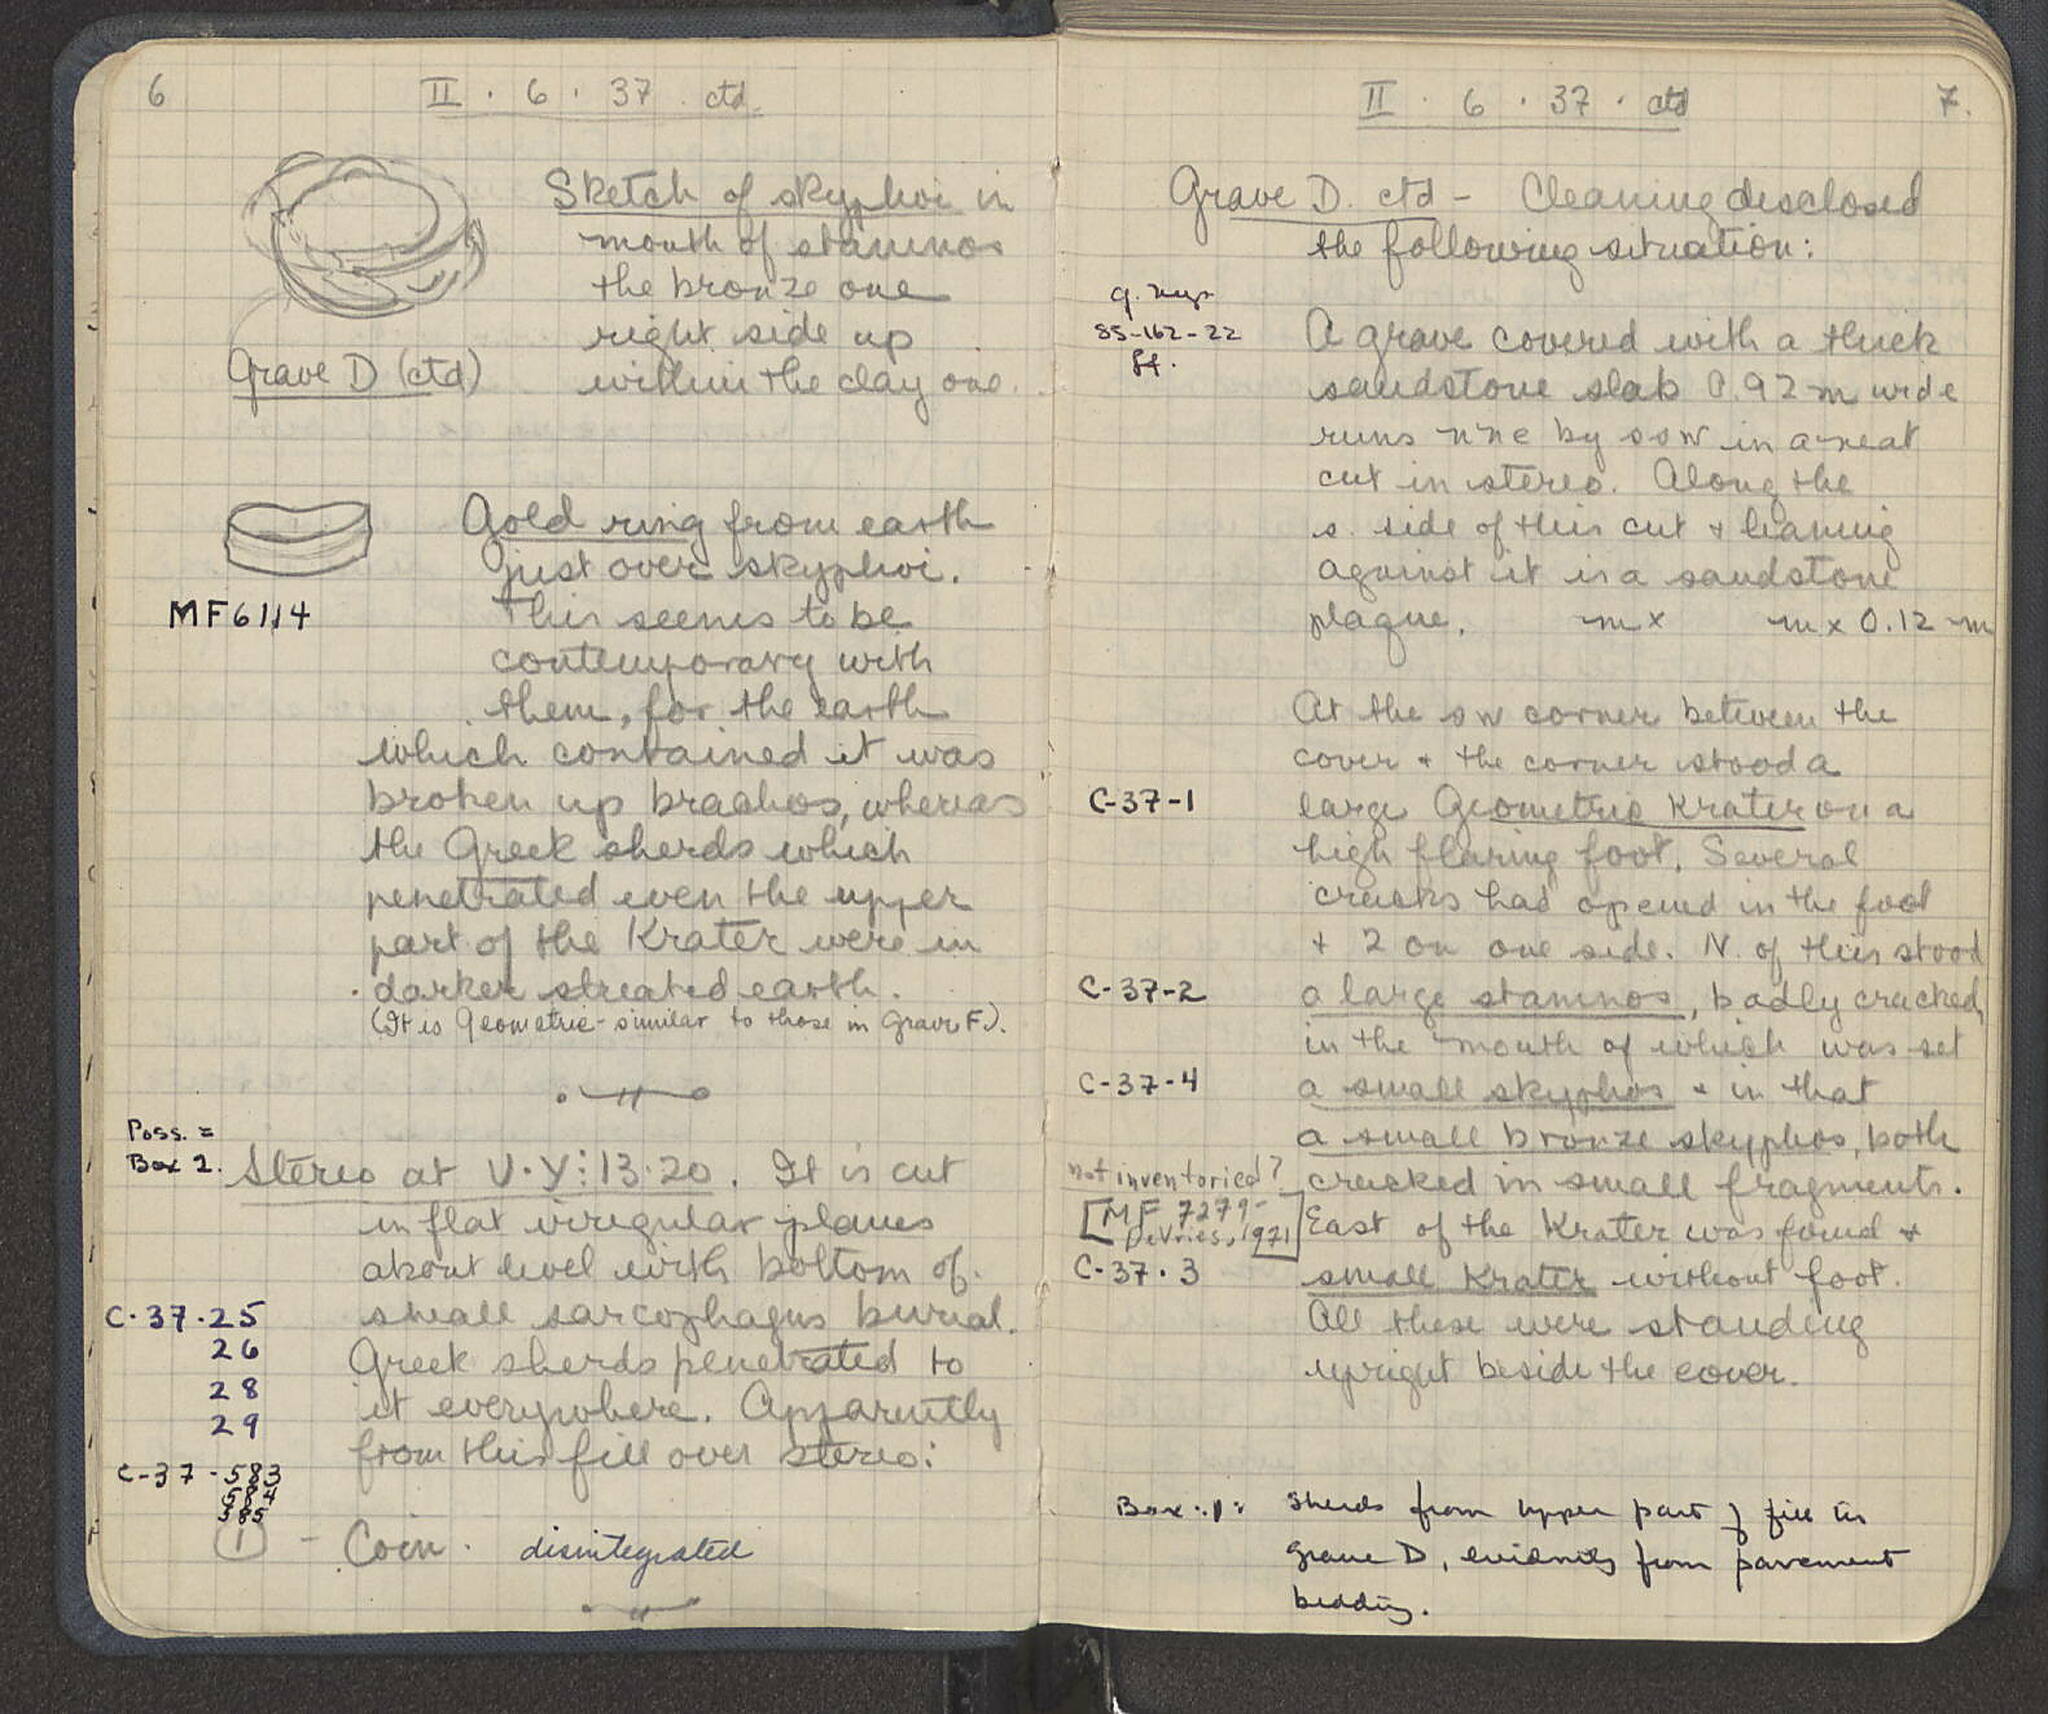 6
II · 6 · 37 · ctd.
Sketch of skyphoi in
mouth of stamnos
the bronze one
right side up
within the clay one.
Grave D (ctd)
Gold ring from earth
just over skyphoi.
MF6114
This seems to be
contemporary with
them, for the earth
which contained it was
broken up brachos, whereas
the Greek sherds which
penetrated even the upper
part of the Krater were in
darker streated earth.
(It is Geometric - similar to those in Grave F).
Poss. =
Box 2.
Stereo at V·Y:13·20. It is cut
in flat irregular planes
about level with bottom of
C·37·25 small sarcophagus burial.
26 Greek sherds penetrated to
28 it everywhere. Apparently
29 from this fill over stereo:
C-37-583
584
585
1 - Coin. disintegrated
II · 6 · 37 · ctd
7.
Grave D. ctd - Cleaning disclosed
the following situation:
SS-162-22
A grave covered with a thick
sandstone slab 0.92 m wide
runs nne by ssw in a neat
cut in stereo. Along the
s. side of this cut + leaning
against it is a sandstone
plaque. m x m x 0.12 m
At the sw corner between the
cover + the corner stood a
C-37-1 large Geometric Krater on a
high flaring foot. Several
cracks had opened in the foot
+ 2 on one side. N. of this stood
C-37-2 a large stamnos, badly cracked,
in the mouth of which was set
C-37-4 a small skyphos + in that
a small bronze skyphos, both
not inventoried? cracked in small fragments.
[MF 7279-
DeVries, 1971]
East of the Krater was found +
C-37·3 small Krater without foot.
All these were standing
upright beside the cover.
Box 1: Sherds from upper part of fill in
grave D, evidently from pavement
bedding.